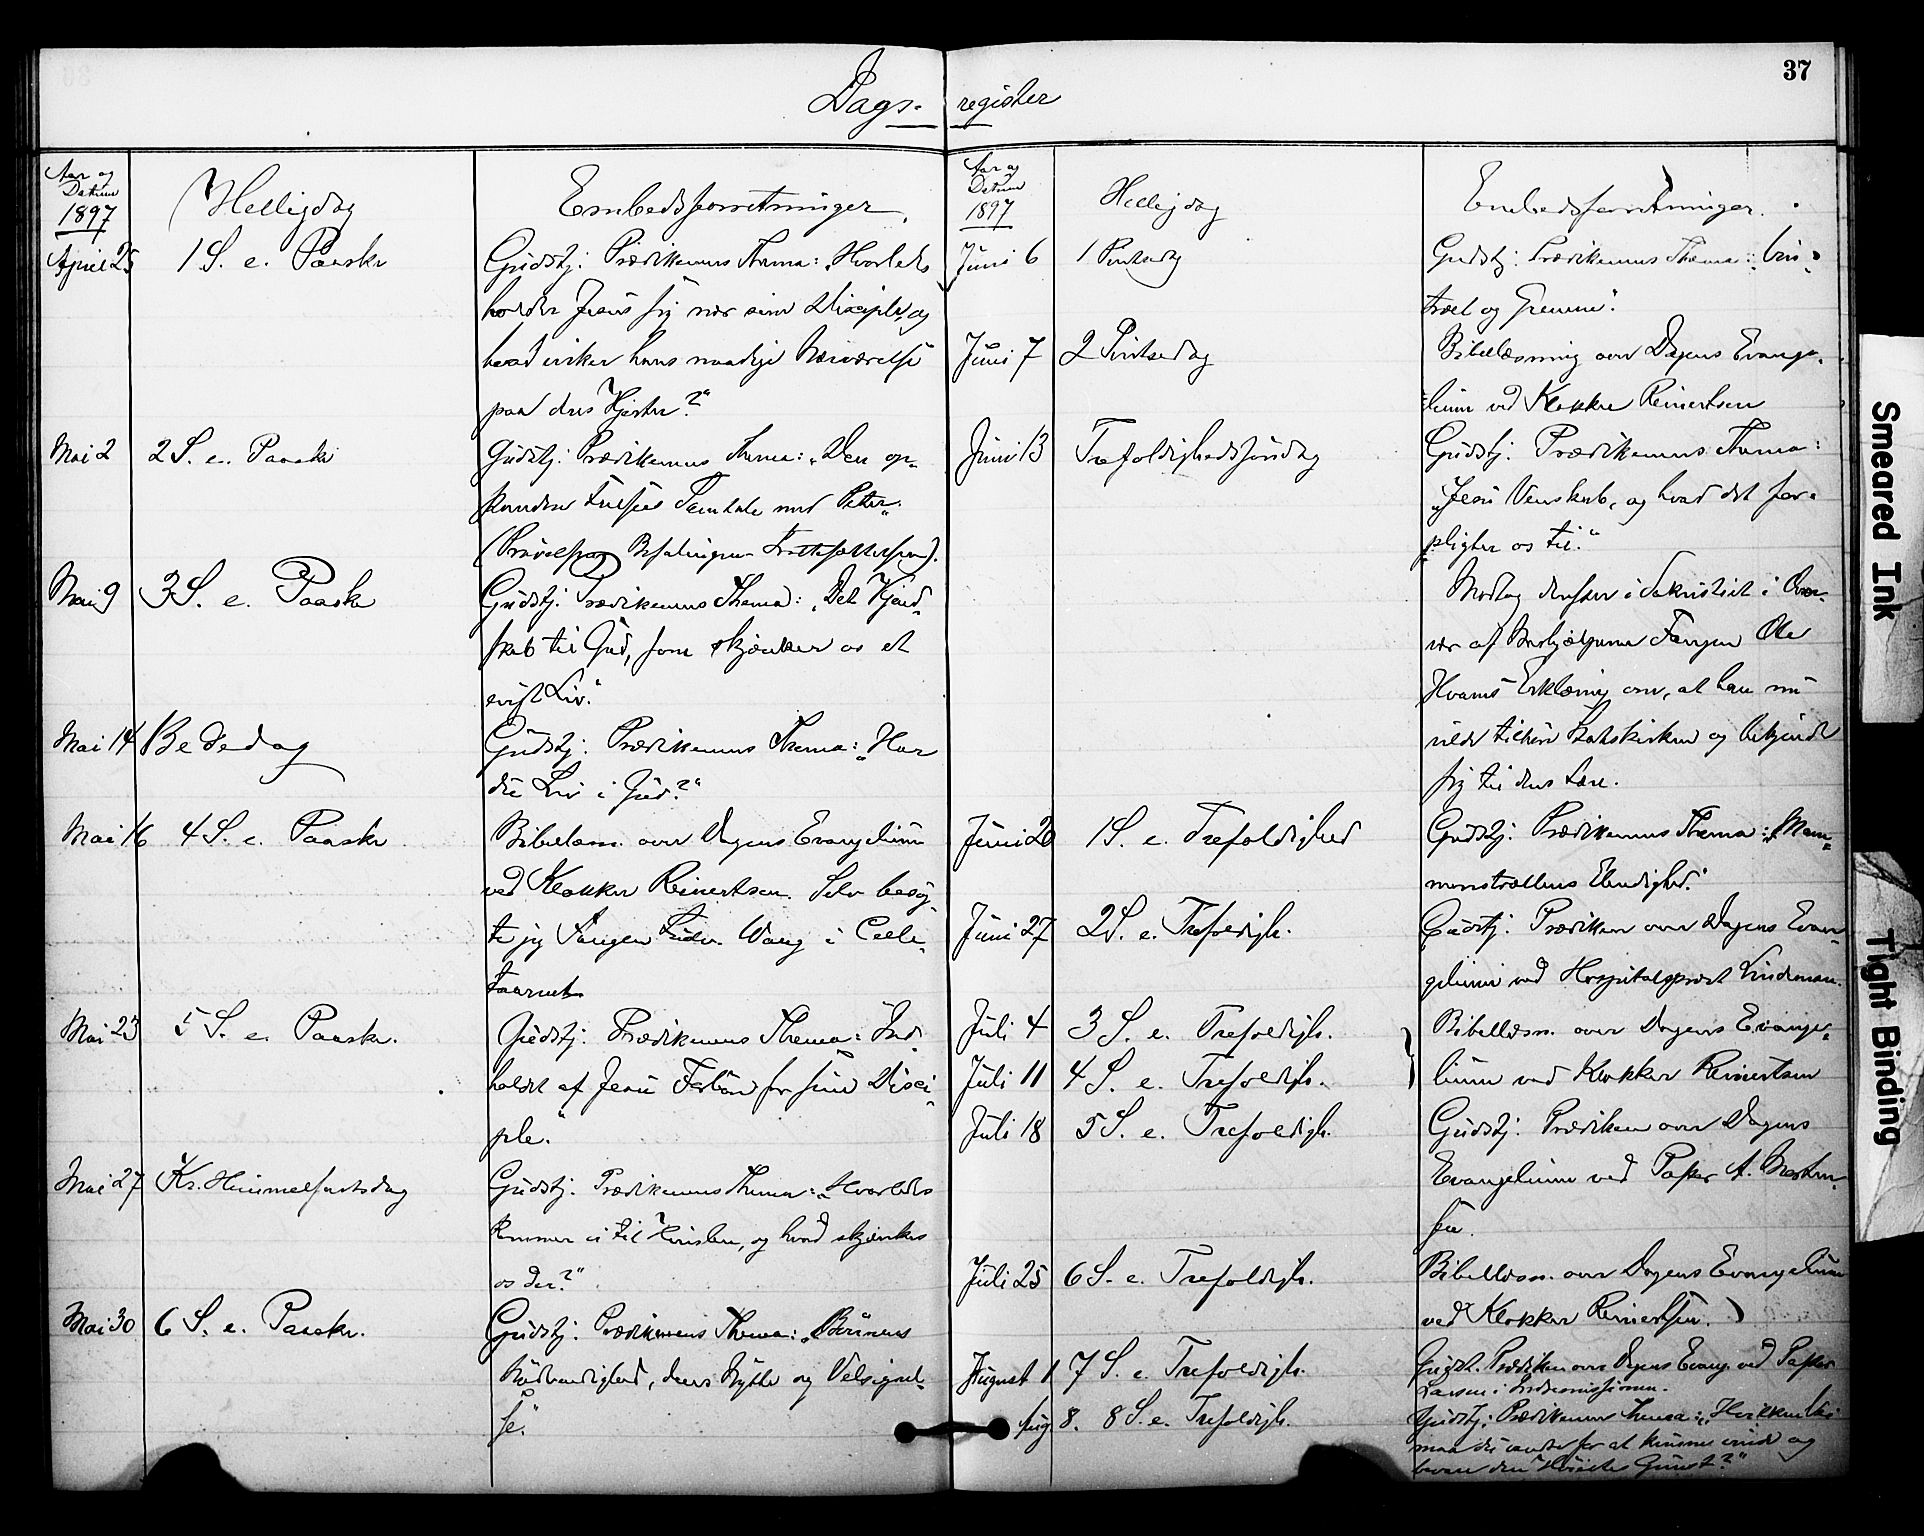 37
Dags- register
Aar og
Datum
1897
Helligdag
Embedsforretninger.
April 25
1 S. e. Paaske
Gudstj. Prædikenens Thema: „Hvorledes
holder Jesus sig nær sine Disciple, og
hvad virker hans naadige Nærværelse
paa deres Hjerter?"
Mai 2
2 S. e. Paaske
Gudstj. Prædikenens Thema: „Den op-
standne Frelsers Samtale med Peter"
(Prøvelsen, Befalingen
Mai 9
3 S. e. Paaske
Gudstj. Prædikenens Thema: „Det Kjend-
skab til Gud, som skjænker os et
evigt Liv."
Mai 14
Bededag
Gudstj. Prædikenens Thema: „Har
du Liv i Gud?"
Mai 16
4 S. e. Paaske
Bibellæsn. over Dagens Evangelium
ved Klokker Reinertsen. Selv besøg-
te jeg Fangen Wang i Celle-
taarnet
Mai 23
5 S. e. Paaske.
Gudstj. Prædikenens Thema: „Ind-
holdet af Jesu Forbøn for sine Disci-
ple."
Mai 27
Kr. Himmelfartsdag
Gudstj. Prædikenens Thema: „Hvorledes
kommer vi til Himlen, og hvad skjænkes
os der?"
Mai 30
6 S. e. Paaske.
Gudstj. Prædikenens Thema: „Bønnens
Nødvendighed, dens Nytte og Velsignel-
se."
Aar og
Datum
1897
Helligdag
Embedsforretninger.
Juni 6
1 Pintsedag
Gudstj. Prædikenens Thema: „Vin-
træet og Grenene."
Juni 7
2 Pintsedag
Bibellæsning over Dagens Evange-
lium ved Klokker Reinertsen
Juni 13
Trefoldighedssøndag
Gudstj. Prædikenens Thema:
„Jesu Venskab, og hvad det for-
pligter os til."
Modtog derefter i Sakristiet i Over-
vær af Medhjælperne Fangen Ole
Hvams Erklæring om, at han nu
vilde tilhøre Statskirken og bekjende
sig til dens Lære.
Juni 20
1 S. e. Trefoldighed
Gudstj. Prædikenens Thema: „Mam-
monstrællens Elendighed."
Juni 27
2 S. e. Trefoldigh.
Gudstj. Prædiken over Dagens Evan-
gelium ved Hospitalspræst Lindeman.
Juli 4
3 S. e. Trefoldigh.
Bibellæsn. over Dagens Evange-
Juli 11
4 S. e. Trefoldigh.
lium ved Klokker Reinertsen
Juli 18
5 S. e. Trefoldigh.
Gudstj. Prædiken over Dagens
Evangelium ved Pastor A. Morten-
sen.
Juli 25
6 S. e. Trefoldigh.
Bibellæsn. over Dagens Evangelium
ved Klokker Reinertsen.
August 1
7 S. e. Trefoldigh.
Gudst. Prædiken over Dagens Evang. ved Pastor
Larsen i Indremissionen.
Aug. 8.
8 S. e. Trefoldigh.
Gudstj. Prædikenens Thema:
maa du for at kunne vinde og
bevare den Høiestes Gunst?"
Smeared Ink
Tight Binding